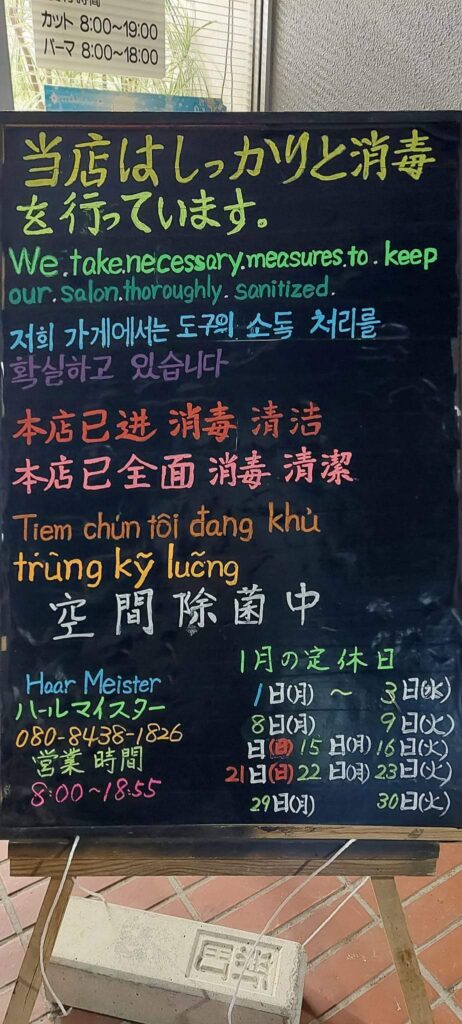 カット 8:00～19:00
パーマ 8:00～18:00
当店はしっかりと消毒
を行っています。
We.take.necessary.measures.to.keep
our.salon.thoroughly.sanitized.
저희 가게에서는 도구의 소독 처리를
확실하고 있습니다
本店已进 消毒 清洁
本店已全面 消毒 清潔
Tiem chún tôi đang khủ
trùng kỹ luõng
空間除菌中
1月の定休日
1日(月) ～ 3日(水)
8日(月) 9日(火)
日(日) 15日(月) 16日(火)
21日(日) 22日(月) 23日(火)
29日(月) 30日(火)
Haar Meister
ハールマイスター
080-8438-1826
営業時間
8:00～18:55